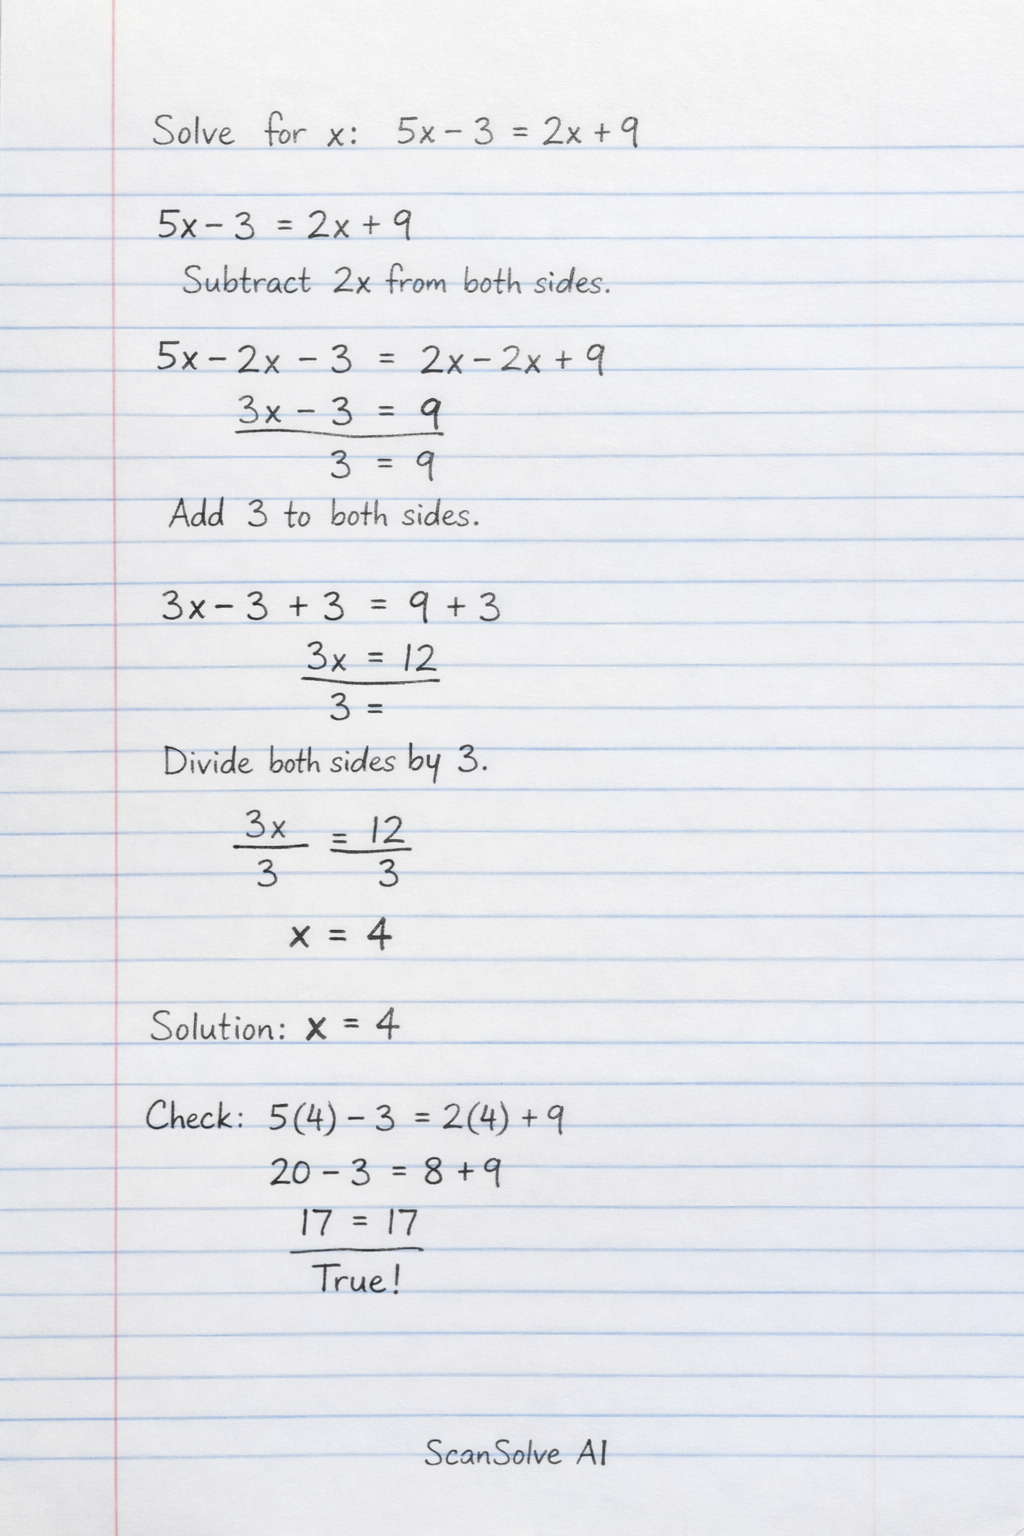 Solve for x: 5x - 3 = 2x + 9
5x - 3 = 2x + 9
Subtract 2x from both sides.
5x - 2x - 3 = 2x - 2x + 9
3x - 3 = 9
3 = 9
Add 3 to both sides.
3x - 3 + 3 = 9 + 3
3x = 12
3 =
Divide both sides by 3.
3x = 12
3 3
x = 4
Solution: x = 4
Check: 5(4) - 3 = 2(4) + 9
20 - 3 = 8 + 9
17 = 17
True!
ScanSolve AI